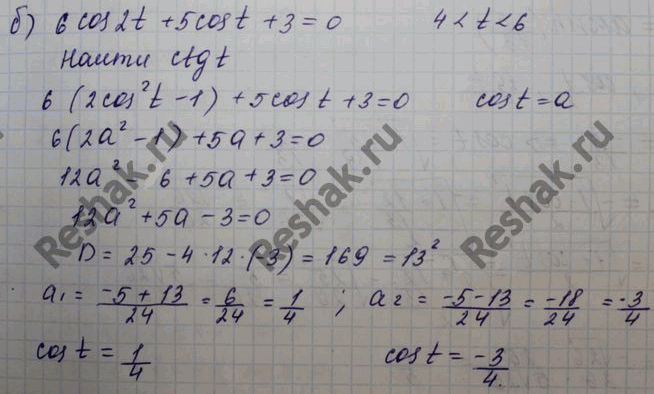 б) 6 cos2t + 5cost + 3 = 0 4 < t < 6
Найти ctg t
6 (2cos²t - 1) + 5cost + 3 = 0 cost = a
6(2a² - 1) + 5a + 3 = 0
12a² - 6 + 5a + 3 = 0
12a² + 5a - 3 = 0
D = 25 - 4·12·(-3) = 169 = 13²
a₁ = \frac{-5+13}{24} = \frac{6}{24} = \frac{1}{4} ; a₂ = \frac{-5-13}{24} = \frac{-18}{24} = \frac{-3}{4}
cost = \frac{1}{4} cost = \frac{-3}{4}
Reshak.ru
Reshak.ru
Reshak.ru